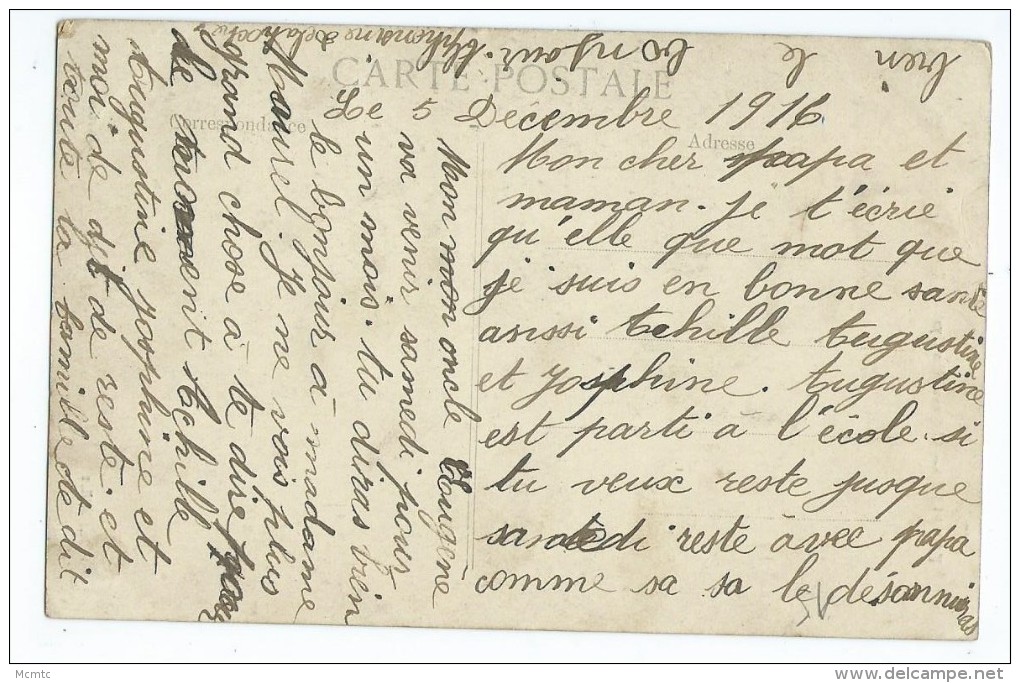 CARTE POSTALE
Correspondance
Adresse
Le 5 Décembre 1916
Mon cher papa et
maman. je t'écrie
qu'elle que mot que
je suis en bonne santé
aussi Achille Augustine
et Josphine. Augustine
est parti à l'école. si
tu veux reste jusque
samedi reste avec papa
comme sa sa le désannuiras
Mon oncle Eugène
va venir samedi pour
un mois. tu diras bien
le bonjour à madame
Maurel. Je ne vois plus
grand chose à te dire pour
le moment Achille
Augustine josphine et
moi de dit de reste. et
toute la famille te dit
bien le bonjour.
Mcmtc
www.delcampe.net